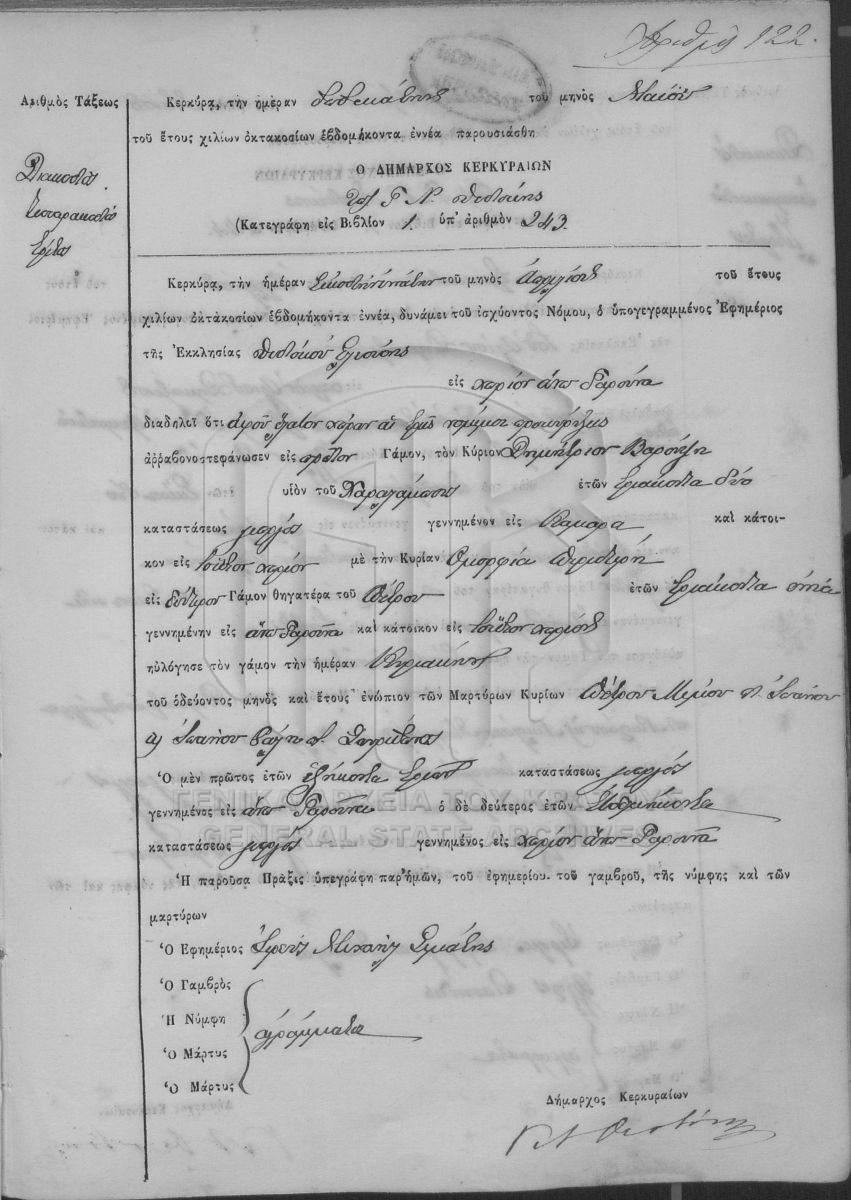 Ἀριθμὸς 122.
Ἀριθμὸς Τάξεως
Διακοστὸς
τεσσαρακοστὸ
τρίτο
Κερκύρᾳ, τὴν ἡμέραν δωδεκάτην τοῦ μηνὸς Μαΐου
τοῦ ἔτους χιλίων ὀκτακοσίων ἑβδομήκοντα ἐννέα παρουσιάσθη
Ο ΔΗΜΑΡΧΟΣ ΚΕΡΚΥΡΑΙΩΝ
Γ. Ν. Θεοτόκης
(Κατεγράφη εἰς Βιβλίον 1. ὑπ' ἀριθμὸν 243.
Κερκύρᾳ, τὴν ἡμέραν εἰκοστὴν ἐννάτην τοῦ μηνὸς Ἀπριλίου τοῦ ἔτους
χιλίων ὀκτακοσίων ἑβδομήκοντα ἐννέα, δυνάμει τοῦ ἰσχύοντος Νόμου, ὁ ὑπογεγραμμένος Ἐφημέριος
τῆς Ἐκκλησίας Θεοτόκου
εἰς χωρίον ἄνω Γαρούνα
διαδηλεῖ ὅτι ἀφοῦ ἔλαβον χώραν αἱ τρεῖς νόμιμοι προκηρύξεις
ἀῤῥαβωνοστεφάνωσεν εἰς πρῶτον Γάμον, τὸν Κύριον Δημήτριον Βαρούχη
υἱὸν τοῦ Χαραλάμπους ἐτῶν τριάκοντα δύο
καταστάσεως γεωργὸς γεννημένον εἰς καὶ κάτοι-
κον εἰς τοῦτον χωρίον μὲ τὴν Κυρίαν Ὀμορφία Περιστέρη
εἰς δεύτερον Γάμον θηγατέρα τοῦ Πέτρου ἐτῶν τριάκοντα ὀκτὼ
γεννημένην εἰς ἄνω Γαρούνα καὶ κάτοικον εἰς τοῦτον χωρίον
ηὐλόγησε τὸν γάμον τὴν ἡμέραν Κυριακὴν
τοῦ ὁδεύοντος μηνὸς καὶ ἔτους ἐνώπιον τῶν Μαρτύρων Κυρίων Πέτρου Ἰωάννου
Ἰωάννου Σπυρίδωνος
Ὁ μὲν πρῶτος ἐτῶν ἑξήκοντα τριῶν καταστάσεως γεωργὸς
γεννημένος εἰς ἄνω Γαρούνα ὁ δὲ δεύτερος ἐτῶν ἑβδομήκοντα
καταστάσεως γεωργὸς γεννημένος εἰς χωρίον ἄνω Γαρούνα
Ἡ παροῦσα Πρᾶξις ὑπεγράφη παρ' ἡμῶν, τοῦ ἐφημερίου τοῦ γαμβροῦ, τῆς νύμφης καὶ τῶν
μαρτύρων
Ὁ Ἐφημέριος Ἱερεὺς Μιχαὴλ
Ὁ Γαμβρὸς
Ἡ Νύμφη
ἀγράμματα
Ὁ Μάρτυς
Ὁ Μάρτυς
Δήμαρχος Κερκυραίων
Γ Ν Θεοτόκης
ΓΕΝΙΚΑ ΑΡΧΕΙΑ ΤΟΥ ΚΡΑΤΟΥΣ
GENERAL STATE ARCHIVES